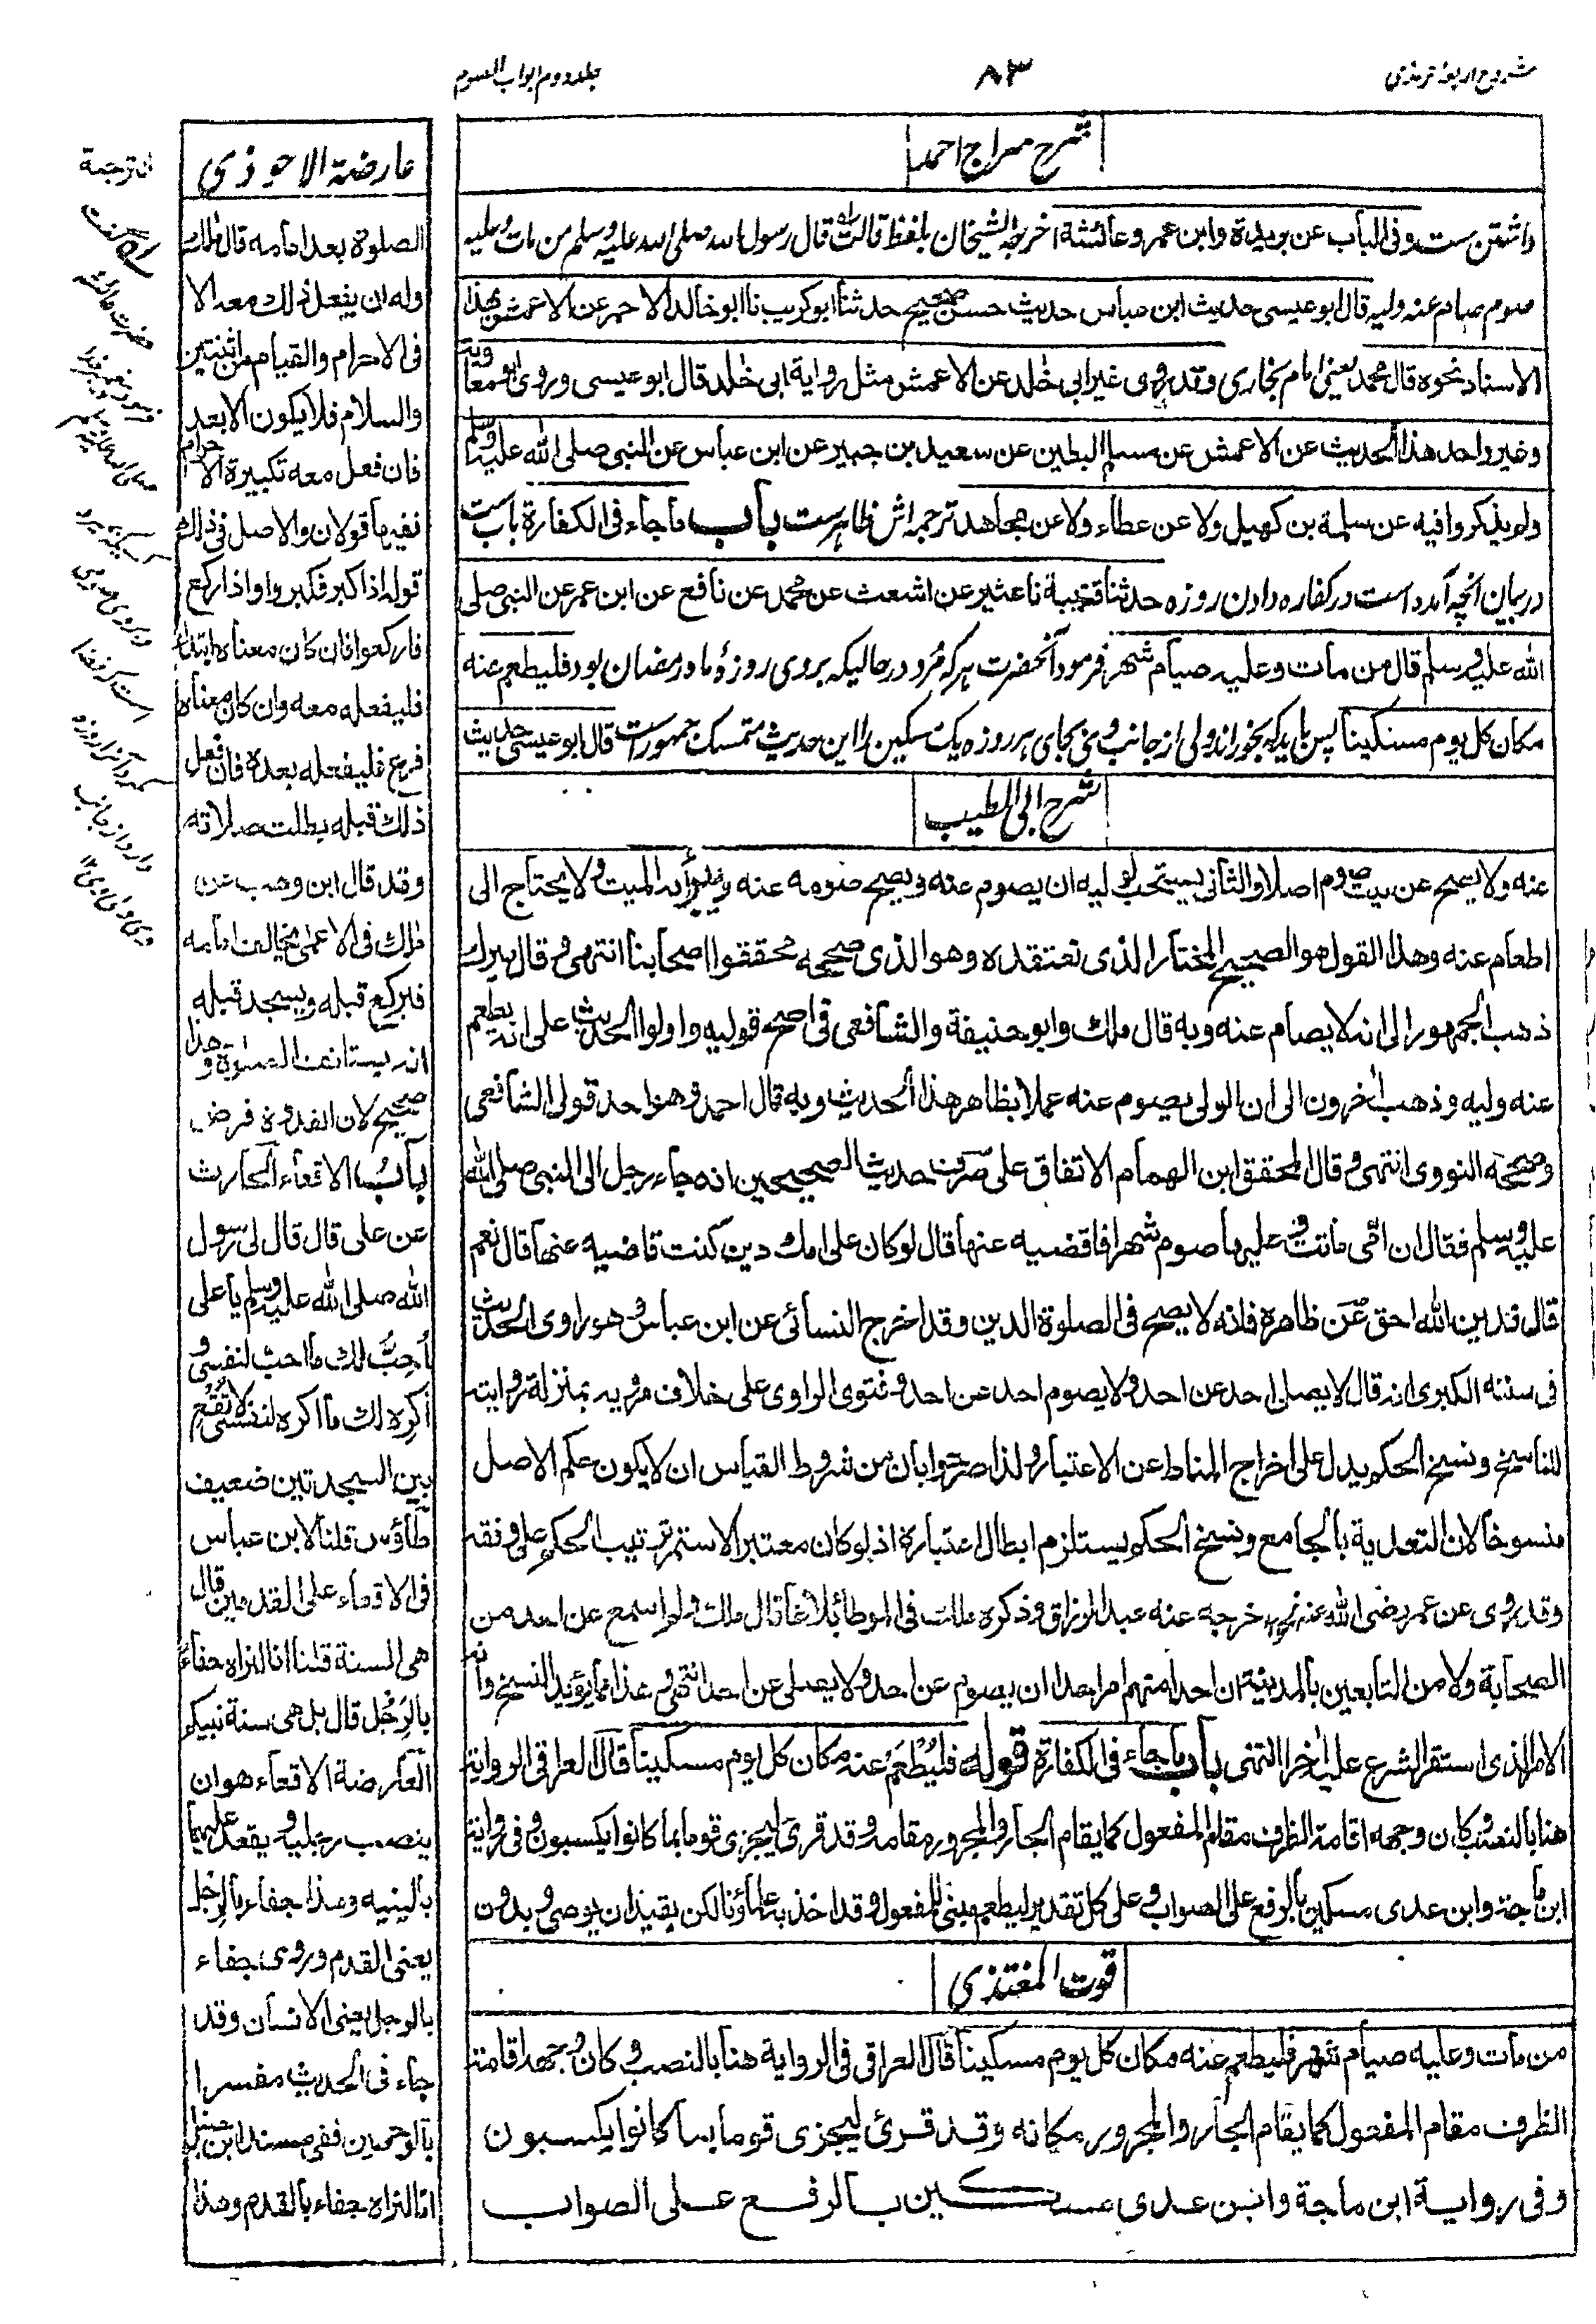 شروح اربعه ترمذی
۸۳
جلد دوم ابواب الصوم
شرح سراج احمد
داشتن ست وفی الباب عن بریدة وابن عمر وعائشة اخرجه الشیخان بلفظ قالت قال رسول الله صلی الله علیه وسلم من مات وعلیه
صوم صام عنه ولیه قال ابو عیسی حدیث ابن عباس حدیث حسن صحیح حدثنا ابو کریب نا ابو خالد الاحمر عن الاعمش بهذا
الاسناد نحوه قال محمد یعنی امام بخاری وقد روی غیر ابی خٰلد عن الاعمش مثل روایة ابی خٰلد قال ابو عیسی وروی ابو معٰویة
وغیر واحد هذا الحدیث عن الاعمش عن مسلم البطین عن سعید بن جبیر عن ابن عباس عن النبی صلی الله علیه وسلم
ولم یذکروا فیه عن سلمة بن کهیل ولا عن عطاء ولا عن مجاهد ترجمه اش ظاهر ست باب ما جاء فی الکفارة باب ست
در بیان آنچه آمده است در کفاره دادن روزه حدثنا قتیبة نا عبثر عن اشعث عن محمد عن نافع عن ابن عمر عن النبی صلی
الله علیه وسلم قال من مات وعلیه صیام شهر فرمود آنحضرت هر که مُرد در حالیکه بر وی روزهٔ ماه رمضان بود فلیطعم عنه
مکان کل یوم مسکینا پس باید که بخوراند ولی از جانب وی بجای هر روزه یک مسکین را این حدیث متمسک جمهور ست قال ابو عیسی حدیث
شرح ابی الطیب
عنه ولا یصح عن میت صوم اصلا والثانی یستحب لولیه ان یصوم عنه ویصح صومه عنه ویبرأ به المیت ولا یحتاج الی
اطعام عنه وهذا القول هو الصحیح المختار الذی نعتقده وهو الذی صححه محققوا اصحابنا انتهی وقال میرک
ذهب الجمهور الی انه لا یصام عنه وبه قال مٰلک وابو حنیفة والشافعی فی اصح قولیه واولوا الحدیث علی انه یطعم
عنه ولیه وذهب اٰخرون الی ان الولی یصوم عنه عملا بظاهر هذا الحدیث وبه قال احمد وهو احد قولی الشافعی
وصححه النووی انتهی وقال المحقق ابن الهمام الاتفاق علی صرف حدیث الصحیحین انه جاء رجل الی النبی صلی الله
علیه وسلم فقال ان امّی ماتت وعلیها صوم شهر افاقضیه عنها قال لو کان علی امک دین کنت قاضیه عنها قال نعم
قال فدین الله احق عن ظاهره فانه لا یصح فی الصلوة الدین وقد اخرج النسائی عن ابن عباس وهو راوی الحدیث
فی سننه الکبری انه قال لا یصلی احد عن احد ولا یصوم احد عن احد وفتوی الراوی علی خلاف مرویه بمنزلة روایته
للناسخ ونسخ الحکم یدل علی اخراج المناط عن الاعتبار ولذا صرحوا بان من شروط القیاس ان لا یکون حکم الاصل
منسوخا لان التعدیة بالجامع ونسخ الحکم یستلزم ابطال اعتباره اذ لو کان معتبرا لاستمر ترتیب الحکم علی وفقه
وقد روی عن عمر رضی الله عنه نحوه اخرجه عنه عبد الرزاق وذکره مٰلک فی الموطا بلاغا قال مٰلک ولم اسمع عن احد من
الصحابة ولا من التابعین بالمدینة ان احدا منهم امر احدا ان یصوم عن احد ولا یصلی عن احد انتهی وهذا مما یؤید النسخ وانه
الامر الذی استقر الشرع علیه اٰخرا انتهی باب ما جاء فی الکفارة قوله فلیُطْعَمْ عنه مکان کل یوم مسکینا قال العراقی الروایة
هنا بالنصب وکان وجهه اقامة الظرف مقام المفعول کما یقام الجار والمجرور مقامه وقد قرئ لیجزی قوما بما کانوا یکسبون وفی روایة
ابن ماجة وابن عدی مسکین بالرفع علی الصواب وعلی کل تقدیر لیطعم مبنی للمفعول وقد اخذ به علماؤنا لکن بقید ان یوصی وبدون
قوت المغتذی
من مات وعلیه صیام شهر فلیطعم عنه مکان کل یوم مسکینا قال العراقی فی الروایة هنا بالنصب وکان وجهه اقامة
الظرف مقام المفعول کما یقام الجار والمجرور مکانه وقد قرئ لیجزی قوما بما کانوا یکسبون
وفی روایة ابن ماجة وابن عدی مسکین بالرفع علی الصواب
عارضة الاحوذی
الصلوة بعد امامه قال مٰلک
وله ان یفعل ذلک معه الا
فی الاحرام والقیام من اثنتین
والسلام فلا یکون الا بعد
فان فعل معه تکبیرة الاحرام
ففیها قولان والاصل فی ذلک
قوله اذا کبر فکبروا واذا رکع
فارکعوا فان کان معناه ابتداء
فلیفعله معه وان کان معناه
فرغ فلیفعله بعده فان فعل
ذلک قبله بطلت صلاته
وقد قال ابن وهب عن
مٰلک فی الاعمی یخالف امامه
فیرکع قبله ویسجد قبله
انه یستانف الصلوة وهذا
صحیح لان القدوة فرض
باب الاقعاء الحارث
عن علی قال قال لی رسول
الله صلی الله علیه وسلم یا علی
أُحِبُّ لک ما احب لنفسی و
أکره لک ما اکره لنفسی لا تُقْعِ
بین السجدتین ضعیف
طاؤس قلنا لابن عباس
فی الاقعاء علی القدمین قال
هی السنة قلنا انا لنراه جفاء
بالرَجُل قال بل هی سنة نبیکم
العارضة الاقعاء هو ان
ینصب رجلیه ویقعد علیهما
بالیتیه وهذا جفاء بالرِجْل
یعنی القدم وروی جفاء
بالرجل یعنی الانسان وقد
جاء فی الحدیث مفسرا
بالوجهین ففی مسند ابن حنبل
انا لنراه جفاء بالقدم وهذا
ترجمة
گفت
حضرت عائشه